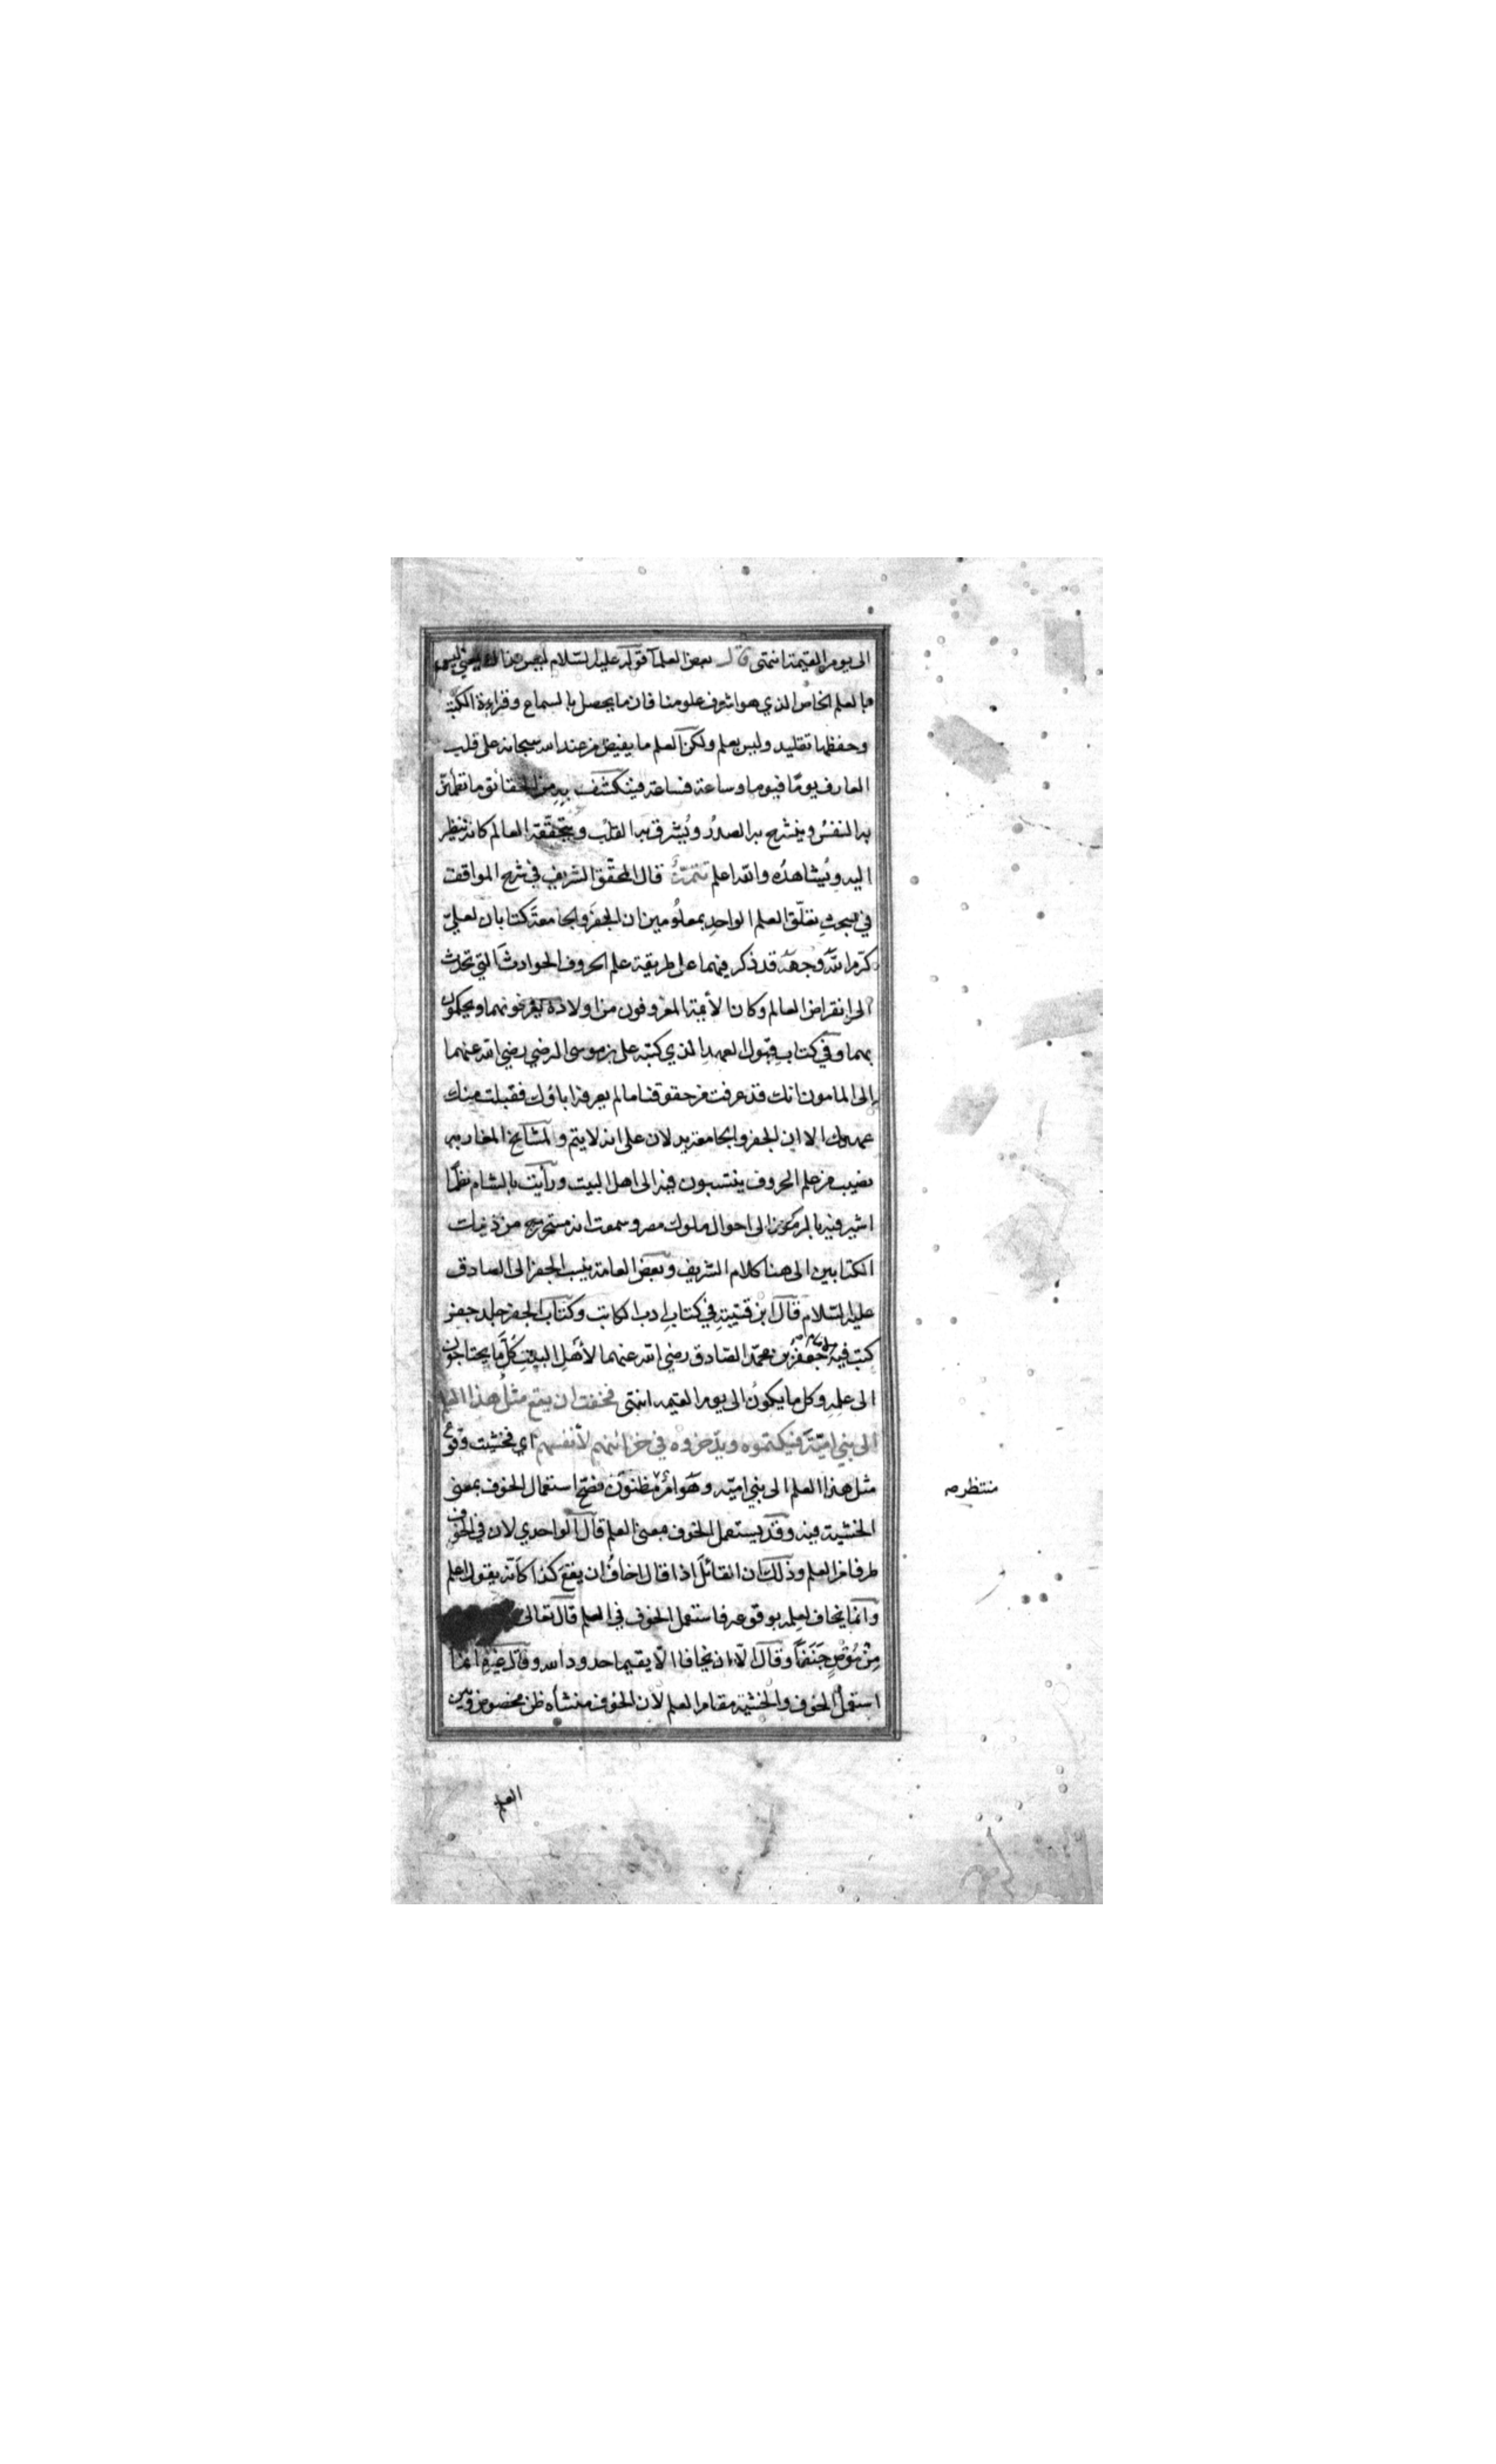 الى يوم القيمة انتهى قال بعض العلمآ قوله عليه السلام ليس هذا يعني ليس
بالعلم الخاص الذي هو اشرف علومنا فان ما يحصل بالسماع وقراءة الكتب
وحفظها تقليد وليس بعلم ولكن العلم ما يفيض من عند الله سبحانه على قلب
العارف يومًا فيوما وساعة فساعة فينكشف به من الحقائق ما تطمئن
به النفسُ وينشرح به الصدرُ ويُشرق به القلبُ ويتحققه العالم كانه ينظر
اليه ويُشاهدُه والله اعلم تتمّةٌ قال المحقّق الشريف في شرح المواقف
في مبحثِ تعلّق العلم الواحدِ بمعلُومين ان الجفرَ والجامعةَ كتابان لعليّ
كرّم اللّه وجهَه قد ذكر فيهما على طريقة علم الحروف الحوادثَ التي تحدث
الى انقراض العالم وكان الأيمة المعروفون من اولاده يعرفونهما ويحكمون
بهما وفي كتابِ قبول العهدِ الذي كتبه علي بن موسى الرضي رضي الله عنهما
إلى المامون انك قد عرفت من حقوقنا ما لم يعرفه اباؤك فقبلت منك
عهدك الا ان الجفر والجامعة يدلان على انه لا يتم ولمشايخ المغاربه
نصيب من علم الحروف ينتسبون فيه الى اهل البيت ورأيت بالشام نظمًا
اشير فيه بالرموز الى احوال ملوك مصر وسمعت انه مستخرج من ذينك
الكتابين الى هنا كلام الشريف وبعض العامة ينسب الجفر الى الصادق
عليه السّلام قال ابن قتيبة في كتابِ ادب الكاتب وكتاب الجفر جلد جفر
كتب فيه جعفرُ بن محمّد الصّادق رضي اللّه عنهما لأهلِ البيتِ كلَّ ما يحتاجون
الى علمِه وكل ما يكونُ الى يوم القيمه انتهى فخفت ان يقع مثلُ هذا العلم
الى بني اميّةَ فيكتموه ويدّخروه في خزائنهم لأنفسهم اي فخشيت وقوع
مثل هذا العلم الى بني اميّه وهَو امرٌ مظنون فصحّ استعمال الخوف بمعنى
الخشية فيه وقد يستعمل الخوف بمعنى العلم قال الواحدي لان في الخوف
طرفا من العلم وذلك ان القائلَ اذا قال اخافُ ان يقعَ كذا كانّه يقول اعلم
وانما يخاف لعلمه بوقوعه فاستعمل الخوف في العلم قال تعالى
مِنْ مُوْصٍ جَنَفًا وقال الّا ان يخافا الّا يقيما حدود الله وقال غيرُه انما
استعمل الخوف والخشية مقام العلم لان الخوف منشأه ظن مخصوص وبين
منتظرصه
العلم